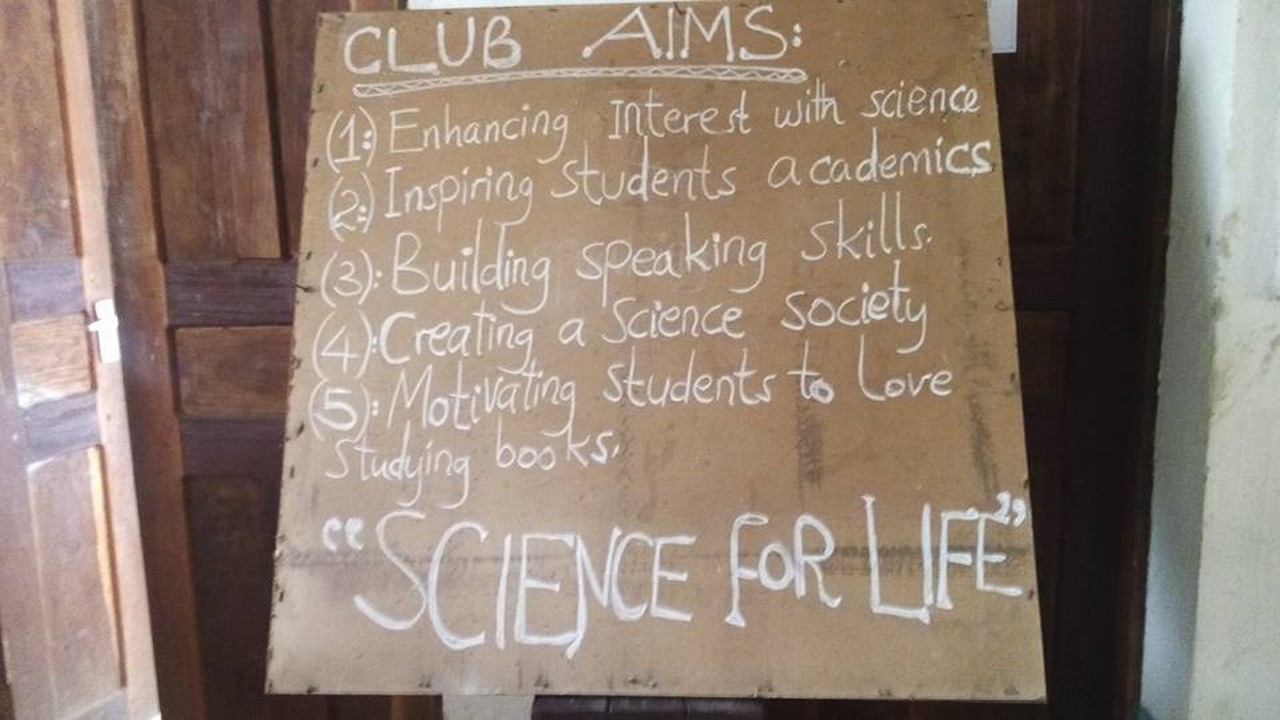 CLUB AIMS:
(1:) Enhancing Interest with science
(2:) Inspiring students academics
(3): Building speaking skills.
(4): Creating a science society
(5): Motivating students to love
studying books.
"SCIENCE FOR LIFE"